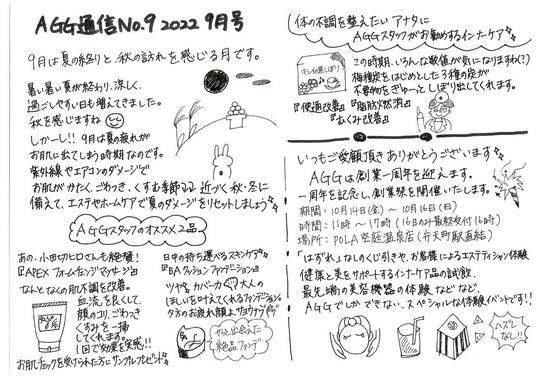 AGG通信 No.9 2022 9月号
9月は夏の終りと、秋の訪れを感じる月です。
暑い暑い夏が終わり、涼しく、
過ごしやすい日も増えてきました。
秋を感じますね
しかーし!! 9月は夏の疲れが
お肌に出てしまう時期なのです。
紫外線やエアコンのダメージで
お肌がかたく、ごわつき、くすむ季節 近づく秋・冬に
備えて、エステやホームケアで夏のダメージをリセットしましょう
AGGスタッフのオススメ2品
あの、小田切ヒロさんも絶賛!
『APEX フォームセンシングマッサージ』
なんとなくの肌び調を改善。
血流を良くして、
顔のコリ、ごわつき
くすみを一掃
してくれます。
1回で効果を実感!!
お肌チェックを受けられた方にサンプルプレゼント
日中の持ち運べるスキンケア
『BAクッションファンデーション』
ツヤ カバー力 大人の
ほしいを叶えてくれるファンデーション。
夕方のお疲れ顔よ、サヨウナラ
やっと出会えた
絶品ファンデ
体の不調を整えたいアナタに
AGGスタッフがお勧めするインナーケア
キレイの黒しぼり
この時期、いろんな数値が気になりますね(?)
梅種炭をはじめとした3種の炭が
不要物をぎゅーっとしぼり出してくれます。
『便通改善』『脂肪燃焼』
『むくみ改善』
いつもご愛顧頂きありがとうございます
AGGは創業一周年を迎えます。
一周年を記念し、創業祭を開催いたします。
期間:10月14日(金)～10月16日(日)
時間:11時～17時(16日のみ最終受付16時)
場所:POLA 空庭温泉店(弁天町駅直結)
「はずれ」なしのくじ引きや、お客様によるエステティシャン体験
健康と美をサポートするインナーケア品の試飲、
最先端の美容機器の体験などなど、
AGGでしかできない、スペシャルな体験イベントです!!
ハズレ
なし!!